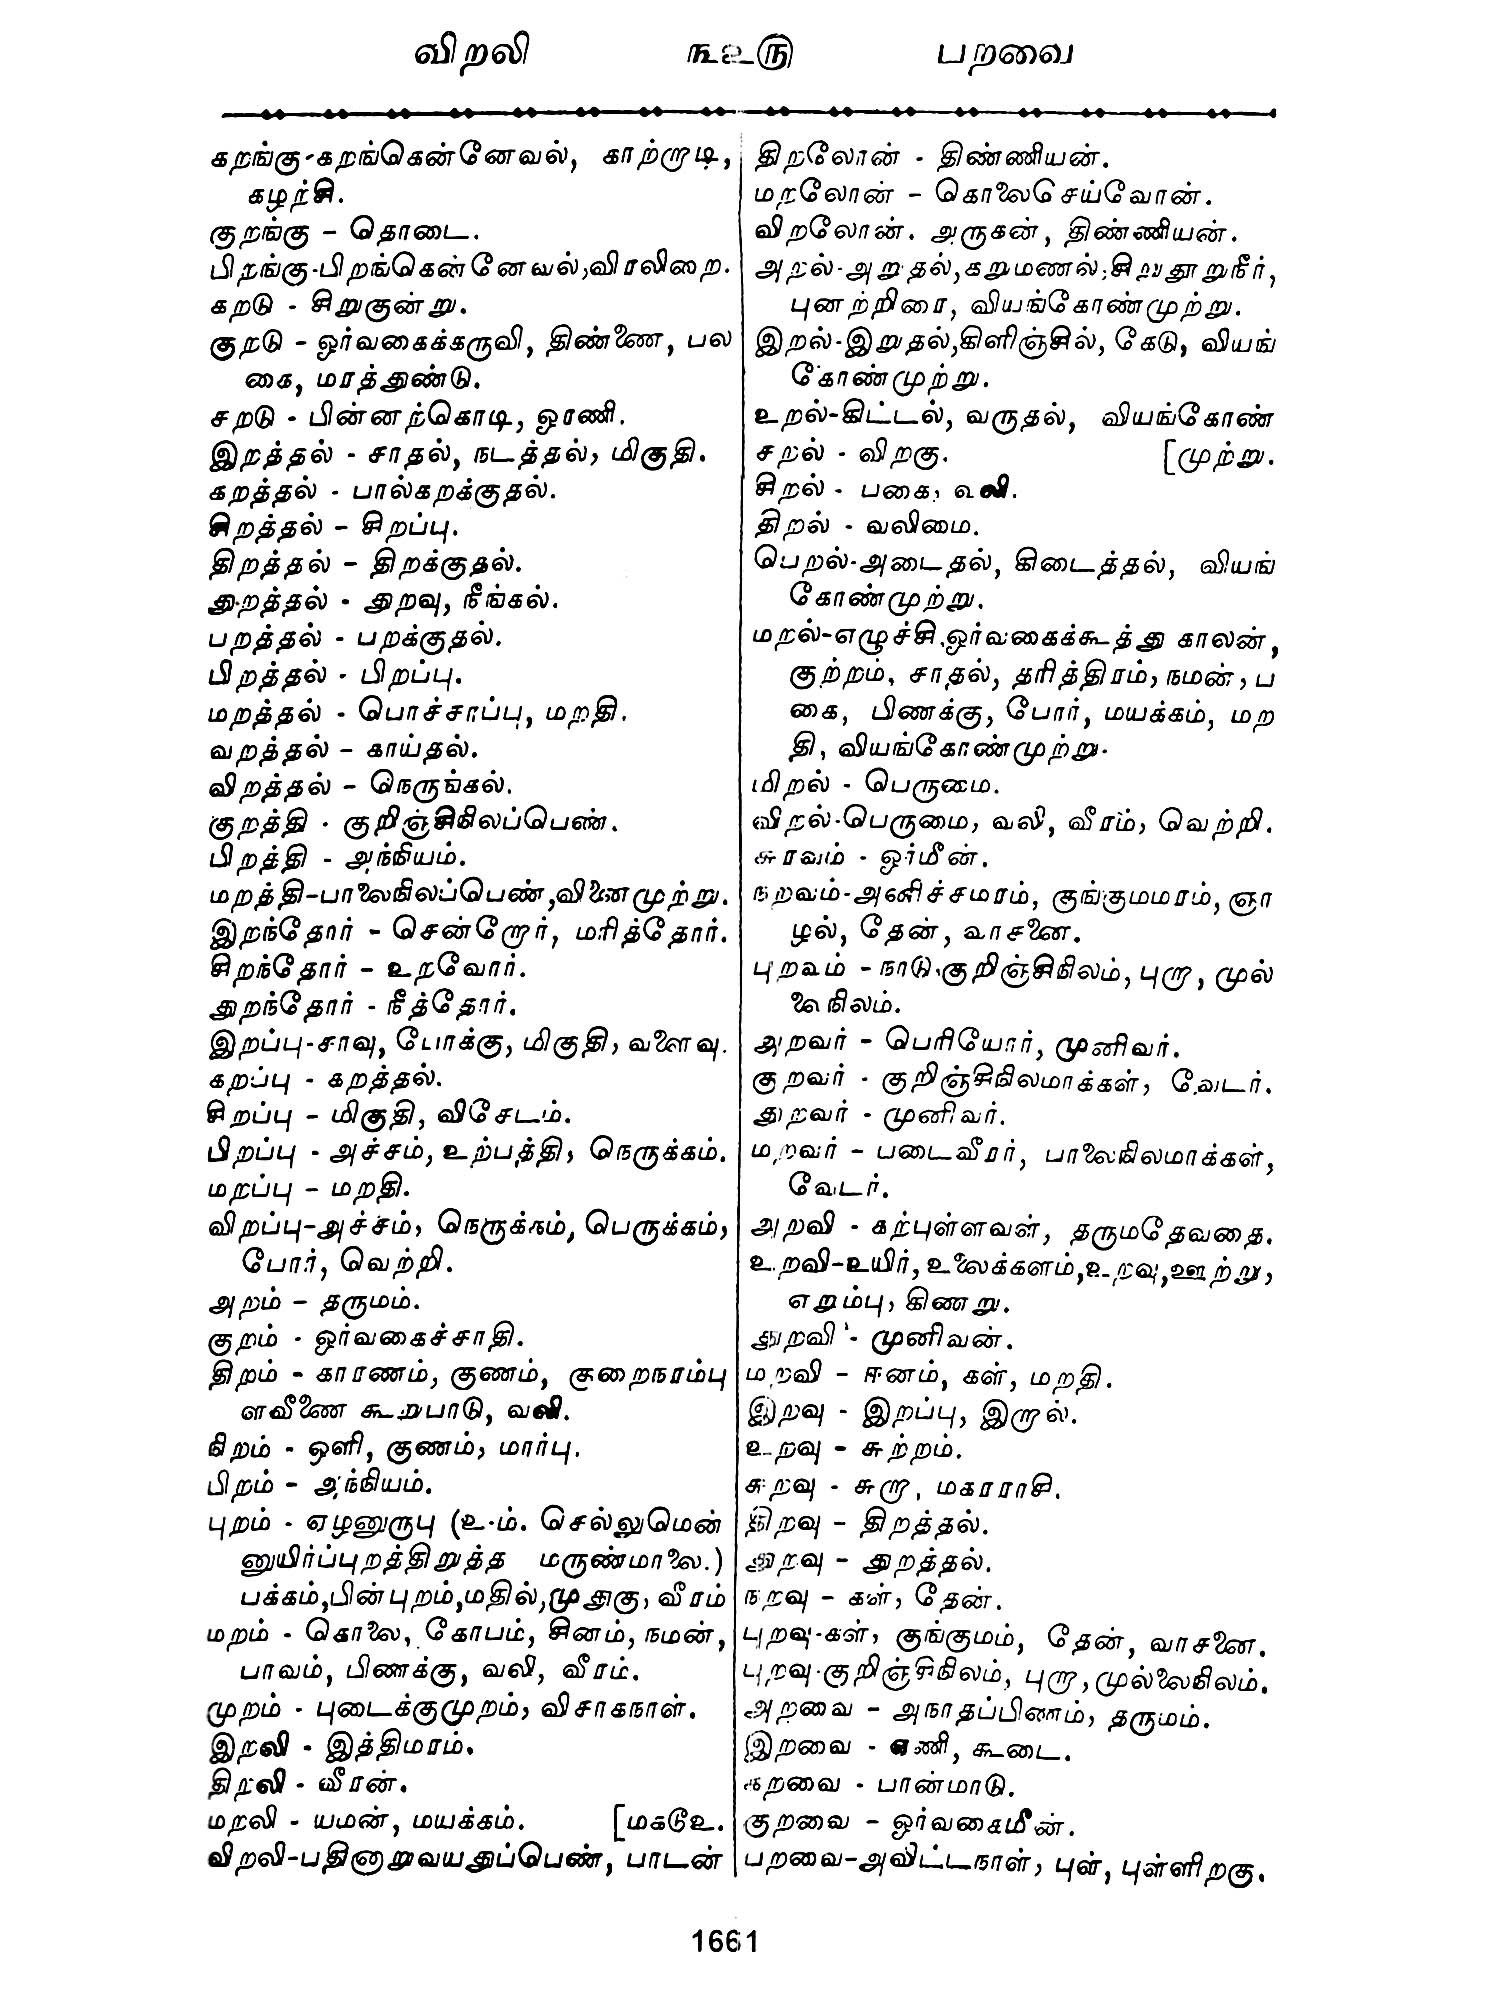 விறலி ௩௨௫ பறவை
கறங்கு-கறங்கென்னேவல், காற்றாடி,
கழற்சி.
குறங்கு - தொடை.
பிறங்கு-பிறங்கென்னேவல்,விரலிறை.
கறடு - சிறுகுன்று.
குறடு - ஓர்வகைக்கருவி, திண்ணை, பல
கை, மரத்துண்டு.
சறடு - பின்னற்கொடி, ஓரணி.
இறத்தல் - சாதல், நடத்தல், மிகுதி.
கறத்தல் - பால்கறக்குதல்.
சிறத்தல் - சிறப்பு.
திறத்தல் - திறக்குதல்.
துறத்தல் - துறவு, நீங்கல்.
பறத்தல் - பறக்குதல்.
பிறத்தல் - பிறப்பு.
மறத்தல் - பொச்சாப்பு, மறதி.
வறத்தல் - காய்தல்.
விறத்தல் - நெருங்கல்.
குறத்தி - குறிஞ்சிநிலப்பெண்.
பிறத்தி - அந்நியம்.
மறத்தி-பாலைநிலப்பெண்,வினைமுற்று.
இறந்தோர் - சென்றோர், மரித்தோர்.
சிறந்தோர் - உறவோர்.
துறந்தோர் - நீத்தோர்.
இறப்பு-சாவு, போக்கு, மிகுதி, வளைவு.
கறப்பு - கறத்தல்.
சிறப்பு - மிகுதி, விசேடம்.
பிறப்பு - அச்சம், உற்பத்தி, நெருக்கம்.
மறப்பு - மறதி.
விறப்பு-அச்சம், நெருக்கம், பெருக்கம்,
போர், வெற்றி.
அறம் - தருமம்.
குறம் - ஓர்வகைச்சாதி.
திறம் - காரணம், குணம், குறைநரம்பு
ளவீணை கூறுபாடு, வலி.
நிறம் - ஒளி, குணம், மார்பு.
பிறம் - அந்நியம்.
புறம் - ஏழனுருபு (உ-ம். செல்லுமென்
னுயிர்ப்புறத்திறுத்த மருண்மாலை.)
பக்கம்,பின்புறம்,மதில்,முதுகு, வீரம்
மறம் - கொலை, கோபம், சினம், நமன்,
பாவம், பிணக்கு, வலி, வீரம்.
முறம் - புடைக்குமுறம், விசாகநாள்.
இறலி - இத்திமரம்.
திறலி - வீரன்.
மறலி - யமன், மயக்கம். [மகடூஉ.
விறலி-பதினாறுவயதுப்பெண், பாடன்
திறலோன் - திண்ணியன்.
மறலோன் - கொலைசெய்வோன்.
விறலோன். அருகன், திண்ணியன்.
அறல்-அறுதல்,கறுமணல்,சிறுதூறுநீர்,
புனற்றிரை, வியங்கோண்முற்று.
இறல்-இறுதல்,கிளிஞ்சில், கேடு, வியங்
கோண்முற்று.
உறல்-கிட்டல், வருதல், வியங்கோண்
சறல் - விறகு. [முற்று.
சிறல் - பகை, வலி.
திறல் - வலிமை.
பெறல்-அடைதல், கிடைத்தல், வியங்
கோண்முற்று.
மறல்-எழுச்சி,ஓர்வகைக்கூத்து காலன்,
குற்றம், சாதல், தரித்திரம், நமன், ப
கை, பிணக்கு, போர், மயக்கம், மற
தி, வியங்கோண்முற்று.
மிறல் - பெருமை.
விறல்-பெருமை, வலி, வீரம், வெற்றி.
சுரவம் - ஓர்மீன்.
நறவம்-அனிச்சமரம், குங்குமமரம், ஞா
ழல், தேன், வாசனை.
புறவம் - நாடு,குறிஞ்சிநிலம், புறா, முல்
லைநிலம்.
அறவர் - பெரியோர், முனிவர்.
குறவர் - குறிஞ்சிநிலமாக்கள், வேடர்.
துறவர் - முனிவர்.
மறவர் - படைவீரர், பாலைநிலமாக்கள்,
வேடர்.
அறவி - கற்புள்ளவள், தருமதேவதை.
உறவி-உயிர், உலைக்களம்,உறவு,ஊற்று,
எறும்பு, கிணறு.
துறவி - முனிவன்.
மறவி - ஈனம், கள், மறதி.
இறவு - இறப்பு, இறால்.
உறவு - சுற்றம்.
சுறவு - சுறா, மகரராசி.
திறவு - திறத்தல்.
துறவு - துறத்தல்.
நறவு - கள், தேன்.
புறவு-கள், குங்குமம், தேன், வாசனை.
புறவு-குறிஞ்சிநிலம், புறா, முல்லைநிலம்.
அறவை - அநாதப்பிணம், தருமம்.
இறவை - ஏணி, கூடை.
கறவை - பான்மாடு.
குறவை - ஓர்வகைமீன்.
பறவை-அவிட்டநாள், புள், புள்ளிறகு.
1661